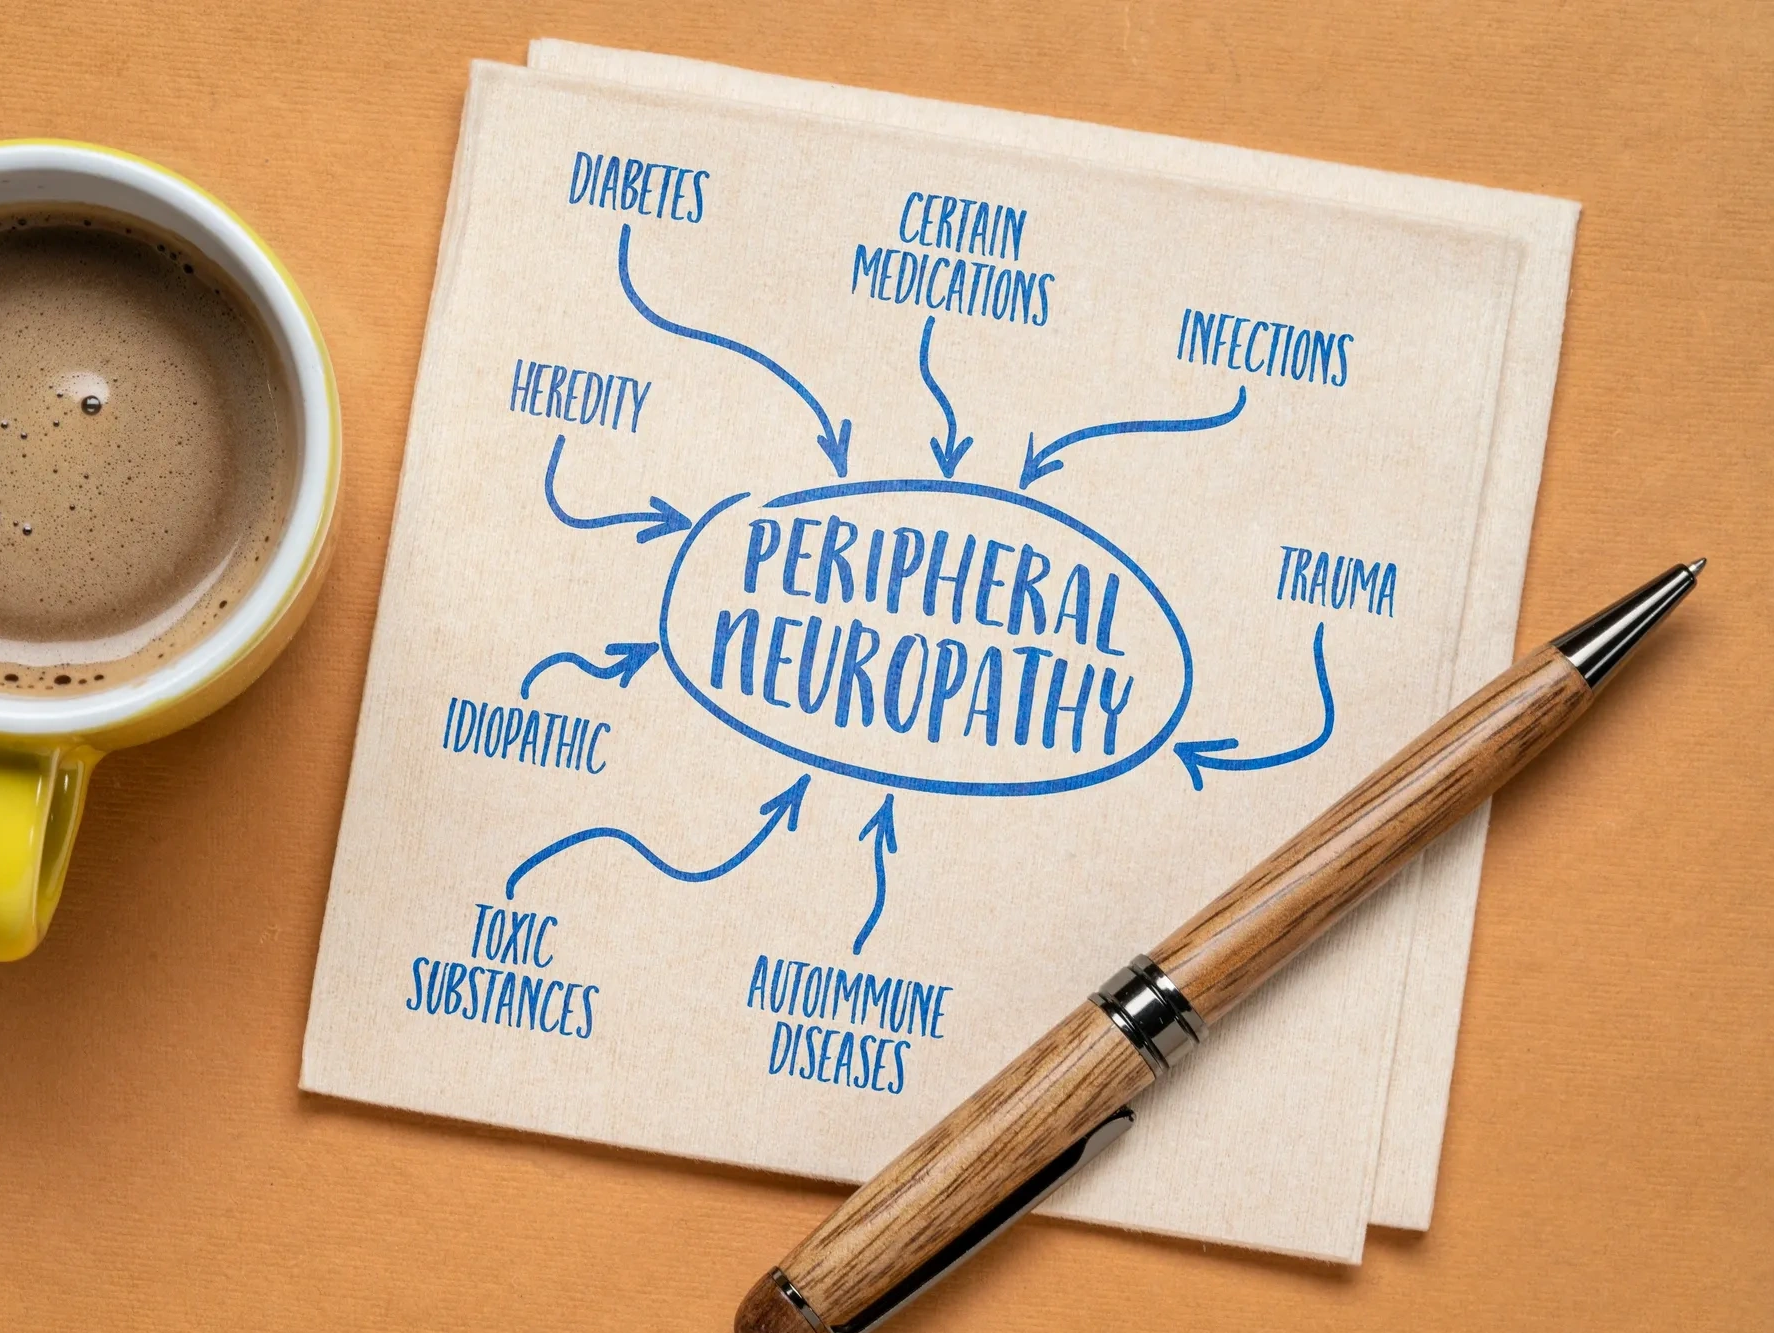 DIABETES
CERTAIN
MEDICATIONS
INFECTIONS
HEREDITY
PERIPHERAL
NEUROPATHY
TRAUMA
IDIOPATHIC
TOXIC
SUBSTANCES
AUTOIMMUNE
DISEASES